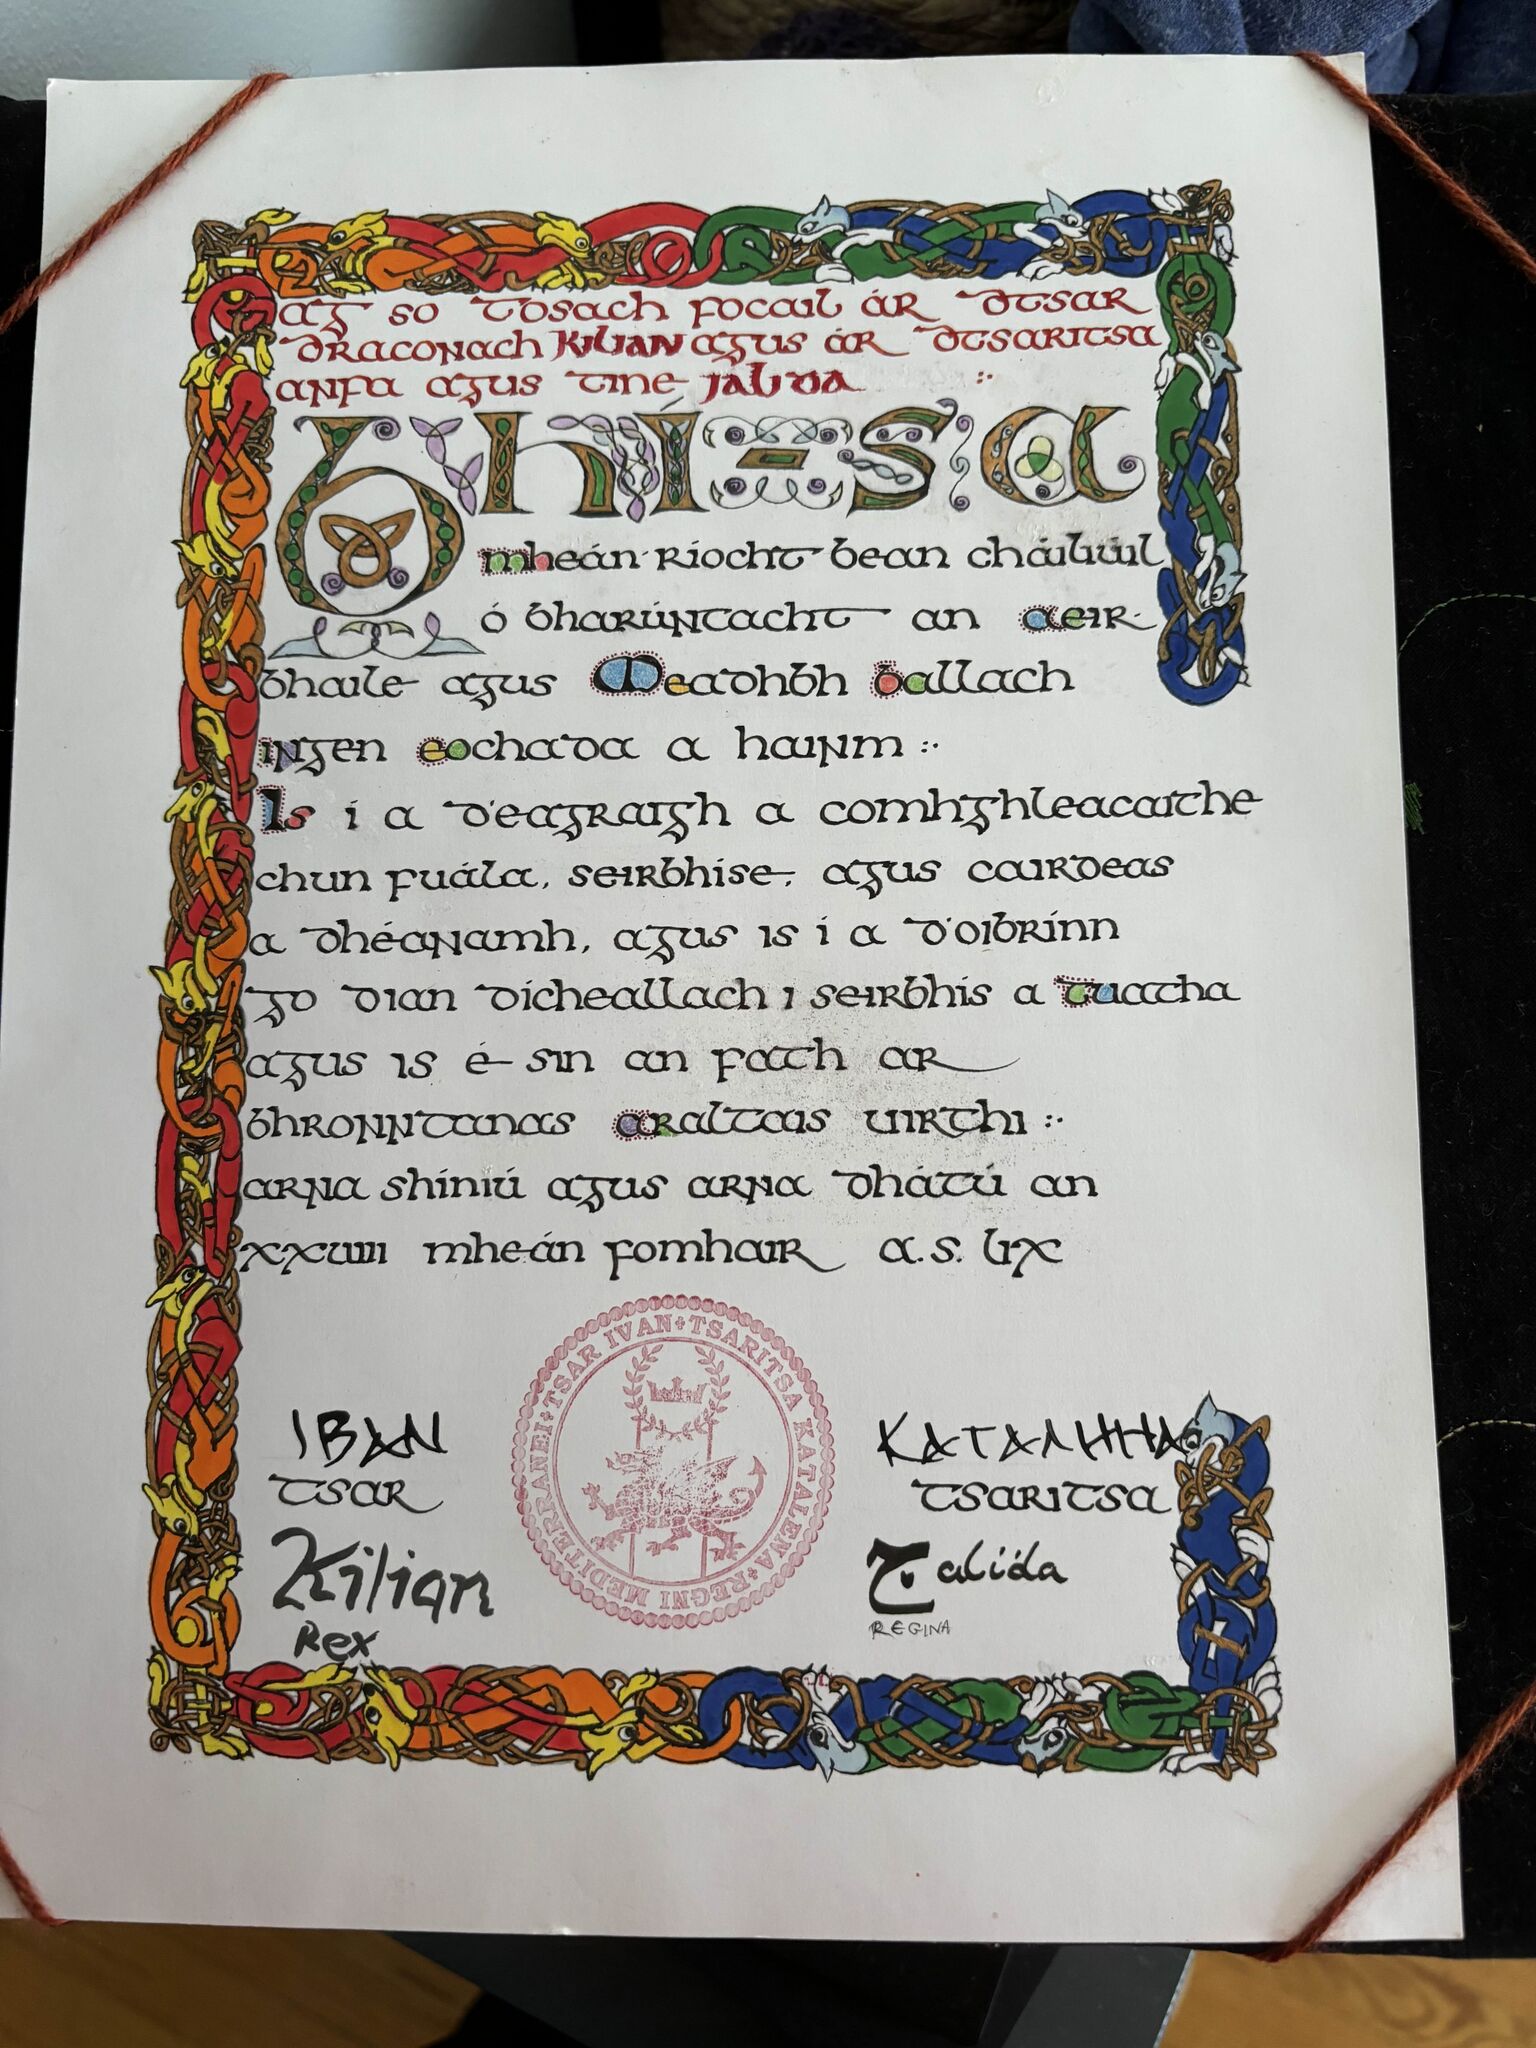 ag so tosach focail ár dtsar
draconach Kilian agus ár dtsaritsa
anfa agus tine Jalida :·
bhí-sa
mheán-ríocht bean cháiliúil
ó bharúntacht an aeir-
bhaile agus Meadhbh ballach
ingen eochada a hainm :·
Is í a d'eagraigh a comhghleacaithe
chun fuála, seirbhíse, agus cairdeas
a dhéanamh, agus is í a d'oibrínn
go dian dícheallach i seirbhís a tuatha
agus is é sin an fath ar
bhronntanas araltais uirthi :·
arna shíniú agus arna dhátú an
xxviii mheán fomhair a.s. lix
TSAR IVAN TSARITSA KATALENA REGNI MEDITERRANEI
IBAN
tsar
Kilian
Rex
tsaritsa
Jalida
REGINA